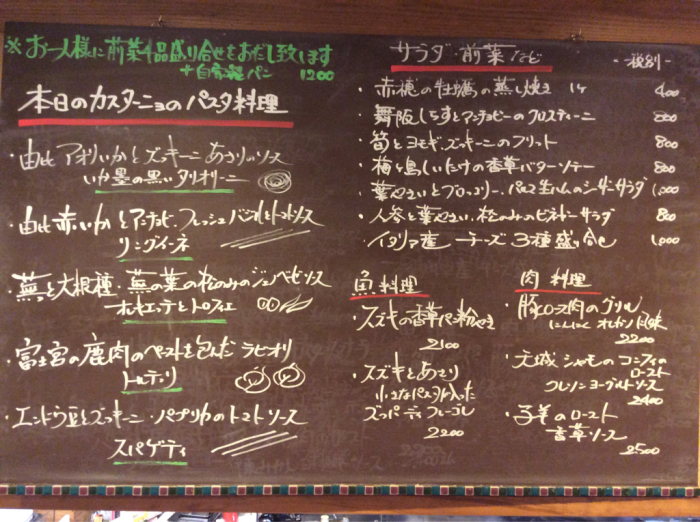 ※お一人様に前菜4品盛り合せをおだし致します
+自家製パン 1200
本日のカスターニョのパスタ料理
・由比アオリいかとズッキーニあさりのソース
いか墨の黒いタリオリーニ
・由比赤いかとアンチョビ・フレッシュバジルとトマトソース
リングイーネ
・蕪と大根種・蕪の葉の松のみのジェノベーゼソース
オレキエッテとトロフィエ
・富士宮の鹿肉のペーストを包んだラビオリ
トルテッリ
・エンドウ豆とズッキーニ・パプリカのトマトソース
スパゲティ
サラダ・前菜など -税別-
・赤穂の牡蠣の蒸し焼き 1ケ 400
・舞阪しらすとアンチョビーのクロスティーニ 800
・筍とヨモギ、ズッキーニのフリット 800
・梅ヶ島しいたけの香草バターソテー 800
・葉やさいとブロッコリー、パルマ生ハムのシーザーサラダ 1,000
・人参と葉やさい、松のみのビネガーサラダ 800
・イタリア産 チーズ3種盛り合せ 1,000
魚料理
・スズキの香草パン粉やき
2100
・スズキとあさり
小さなパスタが入った
ズッパ・ディ・フレーゴレ
2200
肉料理
・豚ロース肉のグリル
にんにくオレガノ風味
2200
・天城シャモのコンフィの
ロースト
クレソンヨーグルトソース
2400
・子羊のロースト
香草ソース
2500